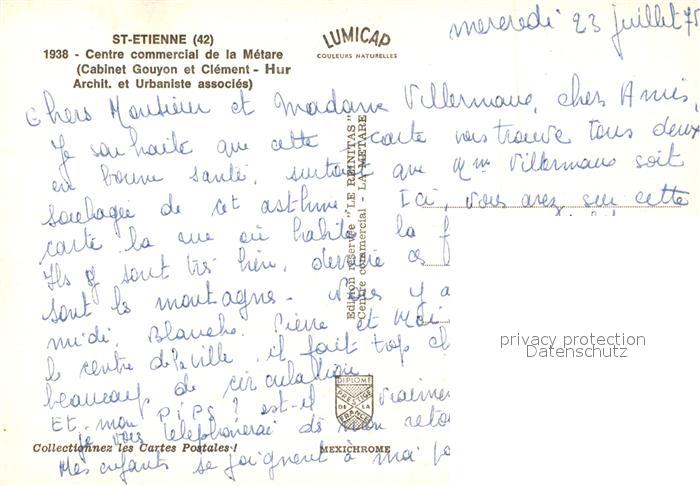 ST-ETIENNE (42)
1938 - Centre commercial de la Métare
(Cabinet Gouyon et Clément - Hur
Archit. et Urbaniste associés)
LUMICAP
COULEURS NATURELLES
mercredi 23 juillet 75
Chers Monsieur et Madame Villermaux, chers Amis,
Je souhaite que cette carte vous trouve tous deux
en bonne santé, surtout que Mme Villermaux soit
soulagée de cet asthme. Ici, vous avez sur cette
carte la rue où habite la f
Ils y sont très bien, derrière ce
sont les montagnes. Nous y a
midi, Blanche, Pierre et Moi
le centre de la ville, il fait trop ch
beaucoup de circulation
Et mon PiPo ? est-il vraimen
je vous téléphonerai dès mon reto
Mes enfants se joignent à moi po
Edition réservée "LE REINITAS"
Centre commercial - LA METARE
DIPLOME
PRESTIGE
DE LA
FRANCE
Collectionnez les Cartes Postales !
MEXICHROME
privacy protection
Datenschutz